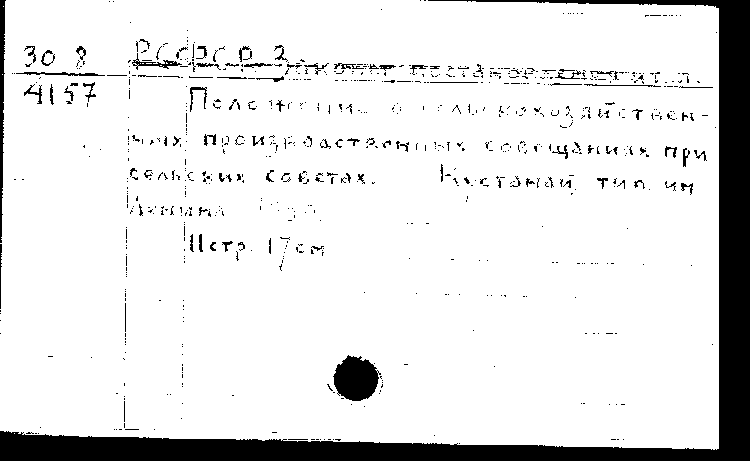 30 8 РСФСР З
аконы постановления и т. п.
4157 Положение о сельскохозяйствен-
ных производственных совещаниях при
сельских советах. Кустанай, тип. им
Ленина
11 стр. 17 см